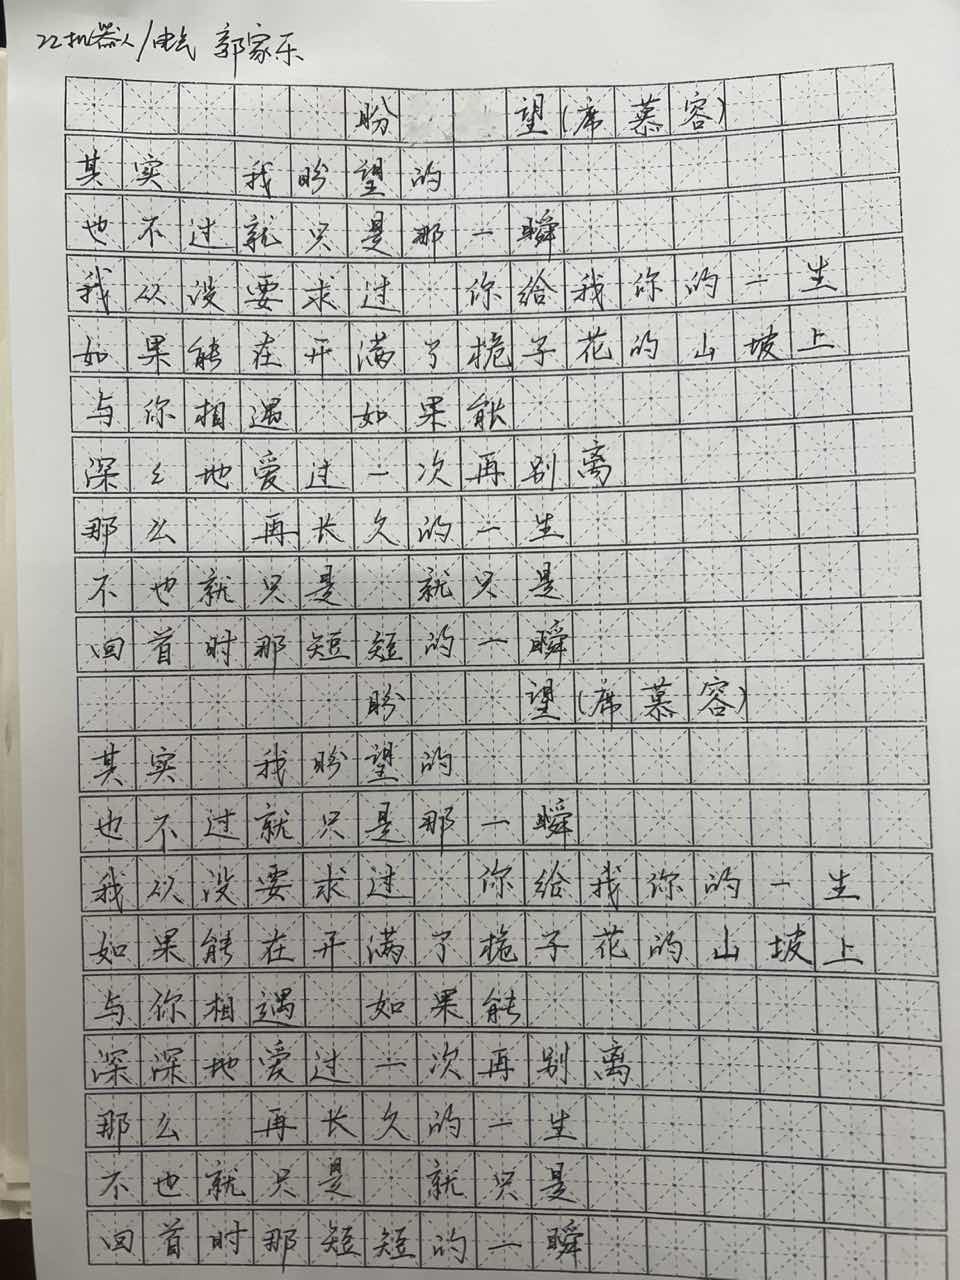 22机器人/电气 郭家乐
盼 望(席慕容)
其实 我盼望的
也不过就只是那一瞬
我从没要求过 你给我你的一生
如果能在开满了栀子花的山坡上
与你相遇 如果能
深々地爱过一次再别离
那么 再长久的一生
不也就只是 就只是
回首时那短短的一瞬
盼 望(席慕容)
其实 我盼望的
也不过就只是那一瞬
我从没要求过 你给我你的一生
如果能在开满了栀子花的山坡上
与你相遇 如果能
深深地爱过一次再别离
那么 再长久的一生
不也就只是 就只是
回首时那短短的一瞬